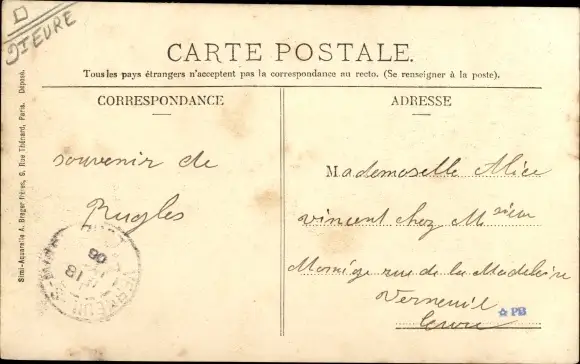 Dt EURE
CARTE POSTALE.
Tous les pays étrangers n'acceptent pas la correspondance au recto. (Se renseigner à la poste).
CORRESPONDANCE
souvenir de
Rugles
ADRESSE
Mademoselle Alice
vincent chez Msieu
rue de la Madeleine
Verneuil
Eure
PB
Simi-Aquarelle A. Breger Frères, 9, Rue Thénard, Paris. Déposé.
18
06